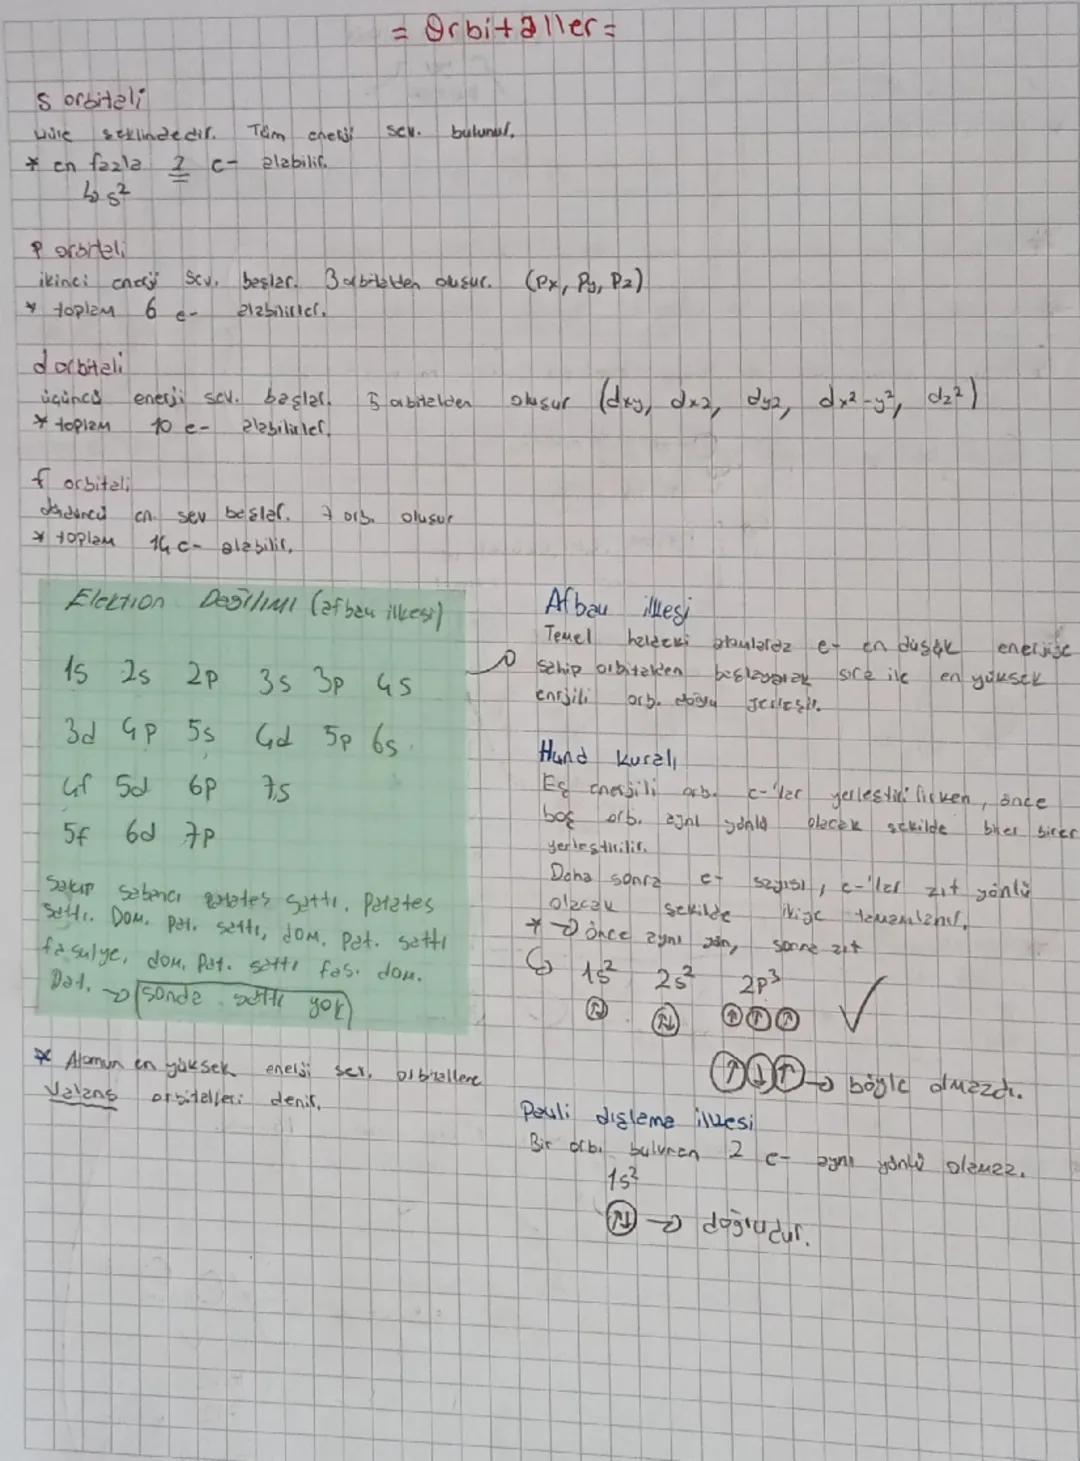 = Orbitaller =
s orbitali
küre şeklindedir. Tüm enerji sev. bulunur.
* en fazla 2 e- alabilir.
↳ s²
p orbitali
ikinci enerji sev. başlar. 3 orbitalden oluşur. (Px, Py, Pz)
* toplam 6 e- alabilirler.
d orbitali
üçüncü enerji sev. başlar. 5 orbitalden oluşur (dxy, dxz, dyz, dx²-y², dz²)
* toplam 10 e- alabilirler.
f orbitali
dördüncü en. sev başlar. 7 orb. oluşur
* toplam 14 e- alabilir.
Elektron Dağılımı (afbau ilkesi)
1s 2s 2p 3s 3p 4s
3d 4p 5s 4d 5p 6s
4f 5d 6p 7s
5f 6d 7p
Sakıp sabancı patates sattı. Patates
sattı. Dom. pat. sattı, dom. pat. sattı
fasulye, dom. pat. sattı fas. dom.
Pat. → sonda sattı yok
* Atomun en yüksek enerji sev. orbitallere
valans orbitalleri denir.
Afbau ilkesi
Temel haldeki atomlarda e- en düşük enerjiye
sahip orbitalden başlayarak sıra ile en yüksek
enerjili orb. doğru yerleşir.
Hund kuralı
Eş enerjili orb. e-'ler yerleştirilirken, önce
boş orb. aynı yönlü olacak şekilde birer birer
yerleştirilir.
Daha sonra e- sayısı, e-'ler zıt yönlü
olacak şekilde ikiye tamamlanır.
* → önce aynı yön, sonra zıt
1s² 2s² 2p³ ✓
↑↓ ↑↓ ↑ ↑ ↑
↑ ↓ ↑ → böyle olmazdı.
Pauli dışlama ilkesi
Bir orb. bulunan 2 e- aynı yönlü olamaz.
1s²
↑↓ → doğrudur.